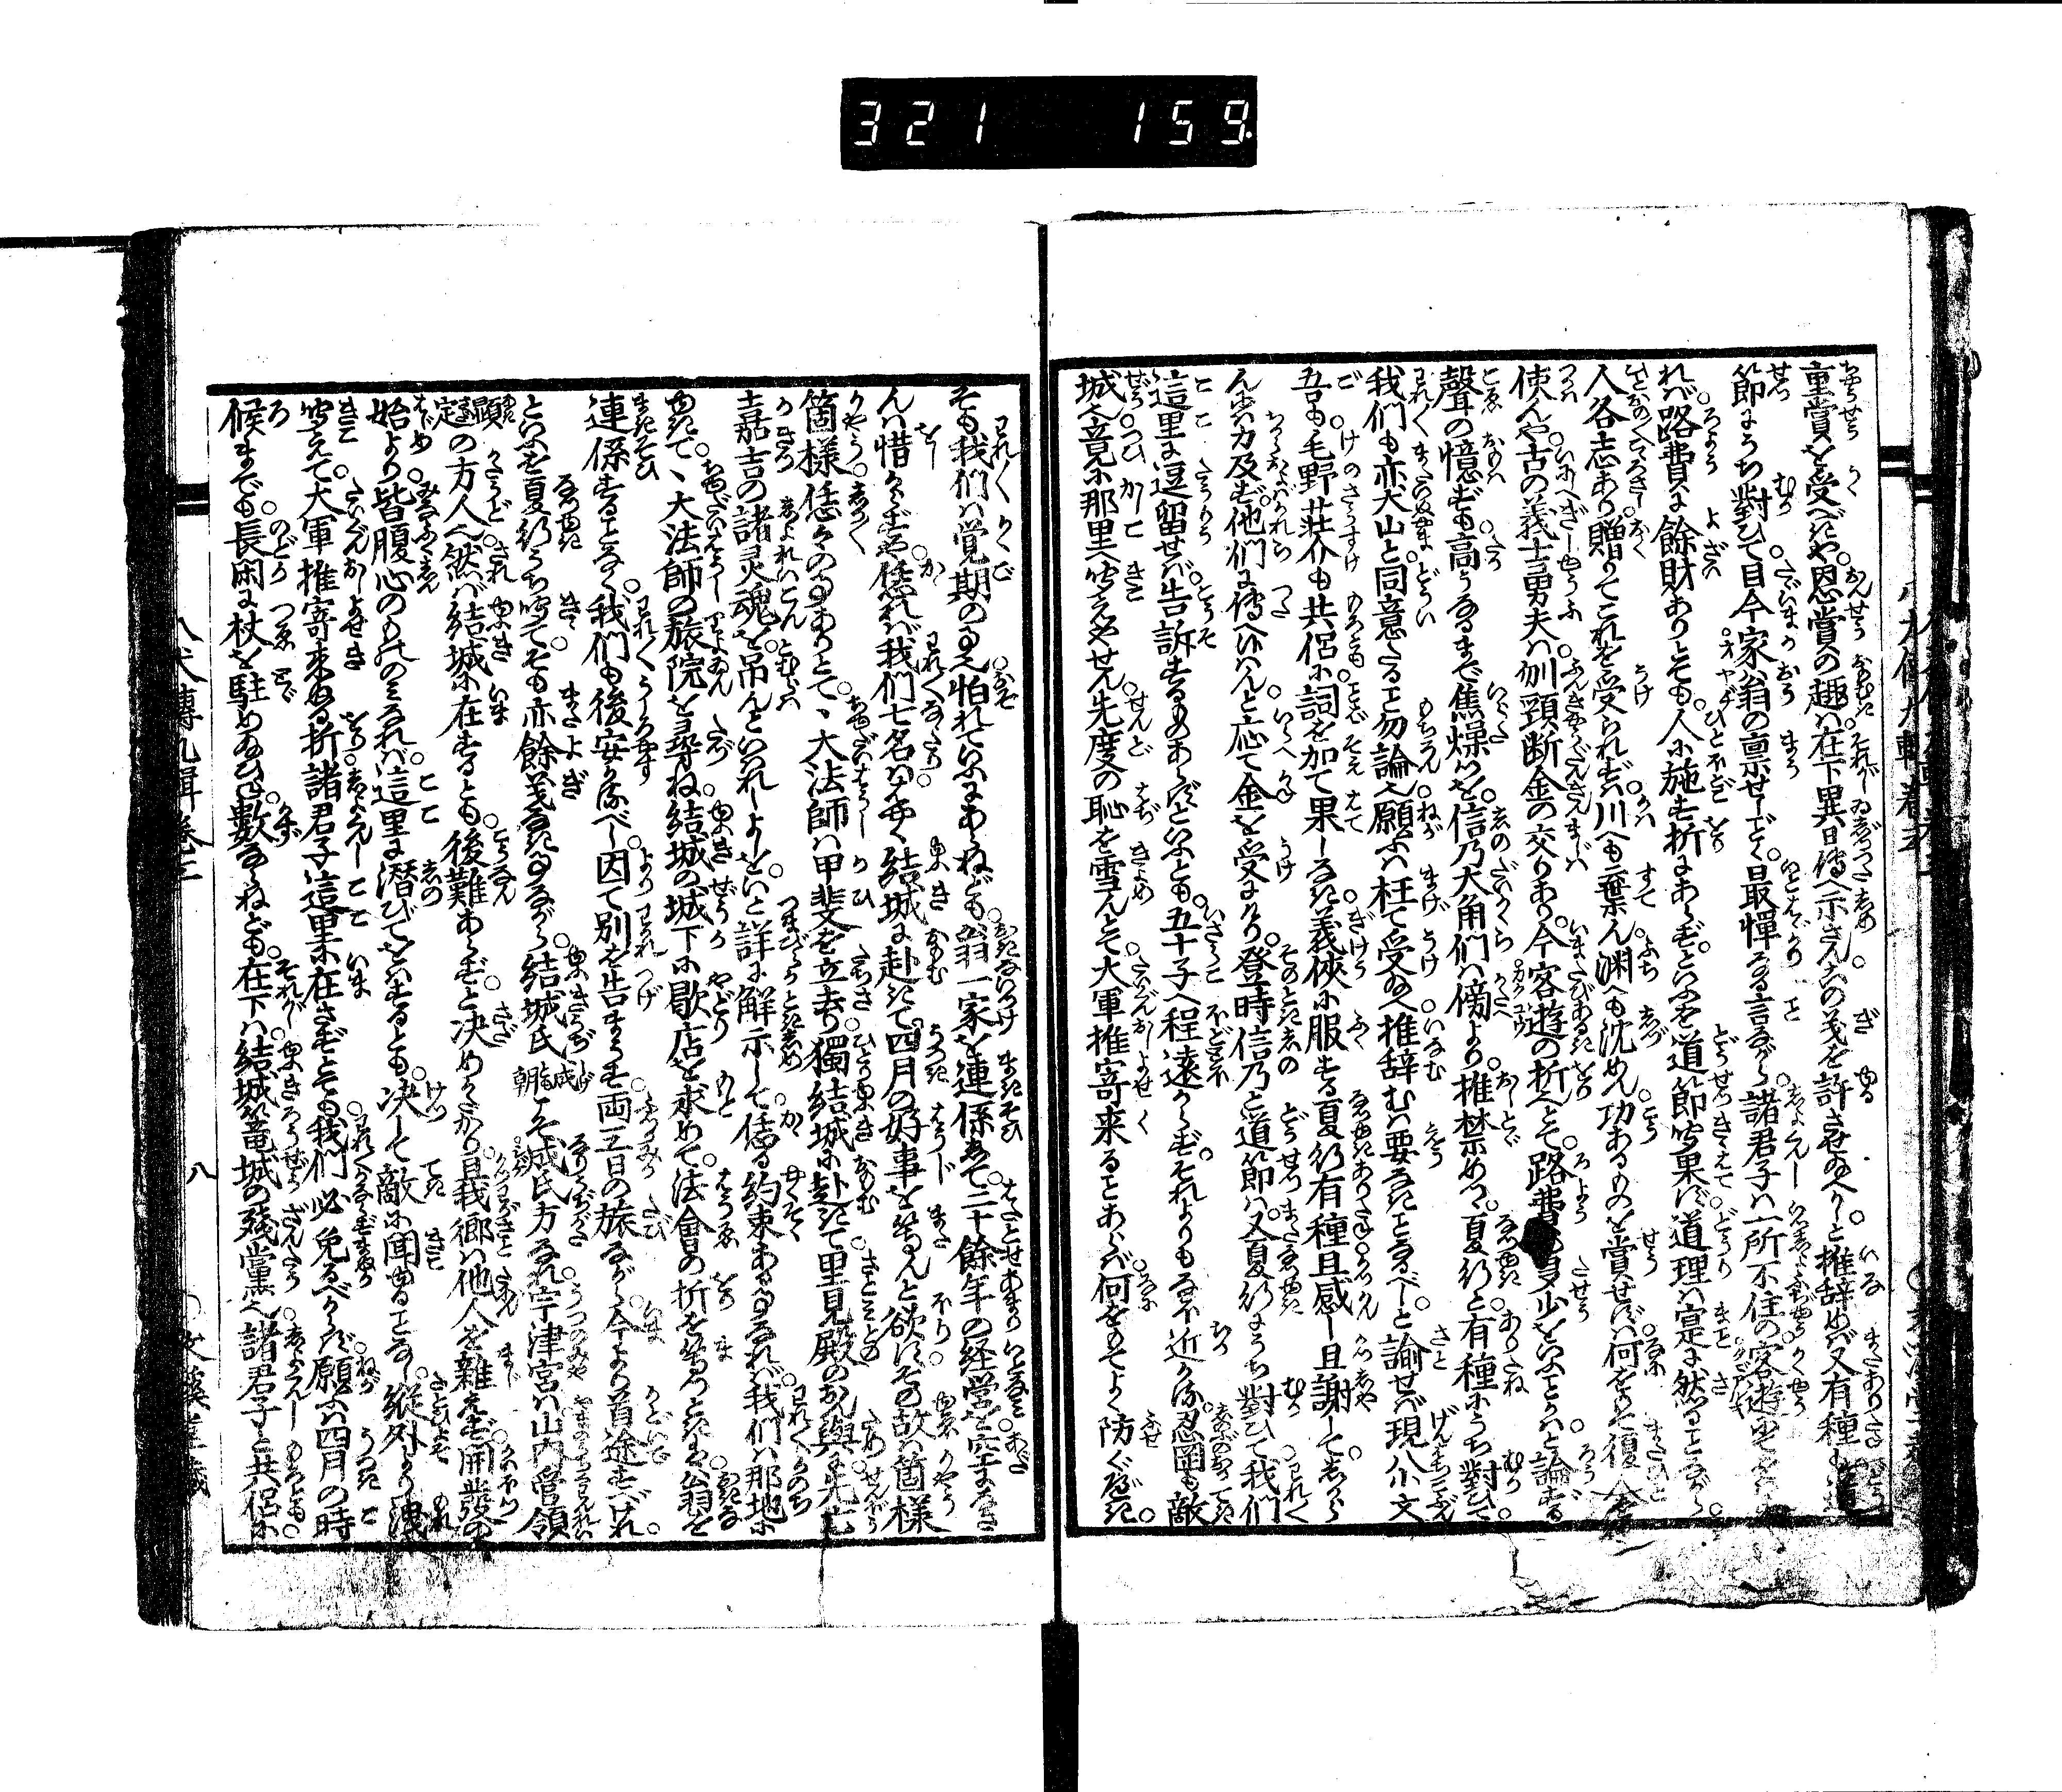 321 159
重賞を受べきや。恩賞の趣は、在下異日傳へ示さん。この義を許させ給へかしと推辞めば又有種
節にうち對ひて、目今家翁の稟せしごとく、最憚る言ながら、諸君子は一所不住の客遊
れば路費に餘財ありとても、人に施す折にあらず。といふを道節聞果ず、道理は寔に然ることながら。
人各志あり。贈りてこれを受られずは、川へも棄ん、淵へも沈めん。功あるものを賞せずは、何をもて復
使んや。古の義士勇夫は、刎頸断金の交りあり。今客遊の折とて、路費の多少をいふことかは、と論ずる
聲の憶ずも高うなるまで焦燥つを、信乃大角們は傍より、推禁めつゝ夏行と有種にうち對ひて、
我們も亦犬山と同意たること勿論也。願ふは枉て受給へ。推辞むは要なきことなるべし、と諭せば現八小文
吾も、毛野荘介も共侶に、詞を加て果しなき、義侠に服する夏行有種、且感じ且謝して、
んには力及ばず。他們に傳へ候はんと応て金を受にけり。登時信乃と道節は、又夏行にうち對ひて、我們
這里に逗留せば、告訴するものあらずといふとも、五十子へ程遠からず。それよりもなほ近かる、忍岡も敵
城也。竟に那里へ聞えやせん。先度の恥を雪んとて、大軍推寄来ることあらば、何をもてよく防ぐべき。
八犬傳九輯 卷之 八
そも我們は覚期の事也。怕れていふにあらねども、翁一家を連係して、二十餘年の経営を、空になさ
んは惜からずや。恁れば我們七名は、はやく結城に赴きて、四月の好事を等んと欲す。その故は箇様
箇様、恁々の事ありとて、ゝ大法師は甲斐を立去り、獨結城に赴きて、里見殿のおん與に、先亡
嘉吉の諸灵魂を、吊んといはれしよしを、いと詳に解示して、恁る約束ある事なれば、我們は那地に
ゆきて、ゝ大法師の旅院を尋ね、結城の城下に歇店を求めて、法會の折を等つときは、翁を
連係することなく、我們も後安かるべし。因て別を告まうす。両三日の旅ながら、今より首途すべけれ。
といふを夏行うち聞て、そも亦餘義なき事ながら、結城氏成朝こそ成氏方なれ、宇津宮は山内管領
顕定の方人也。然ば結城に在するとも、後難あらずと決めかたかり。且我郷は他人を雑えず、開發の
始より、皆腹心のものゝみなれば、這里に潜びてをはするとも、決して敵に聞ゆることなし。縦外より洩
聞えて、大軍推寄来ぬる折、諸君子這里に在さずとても、我們必免るべからず。願ふは四月の時
候までも、長閑に杖を駐め給ひね。數ならねども在下は、結城篭城の殘黨也。諸君子と共侶に